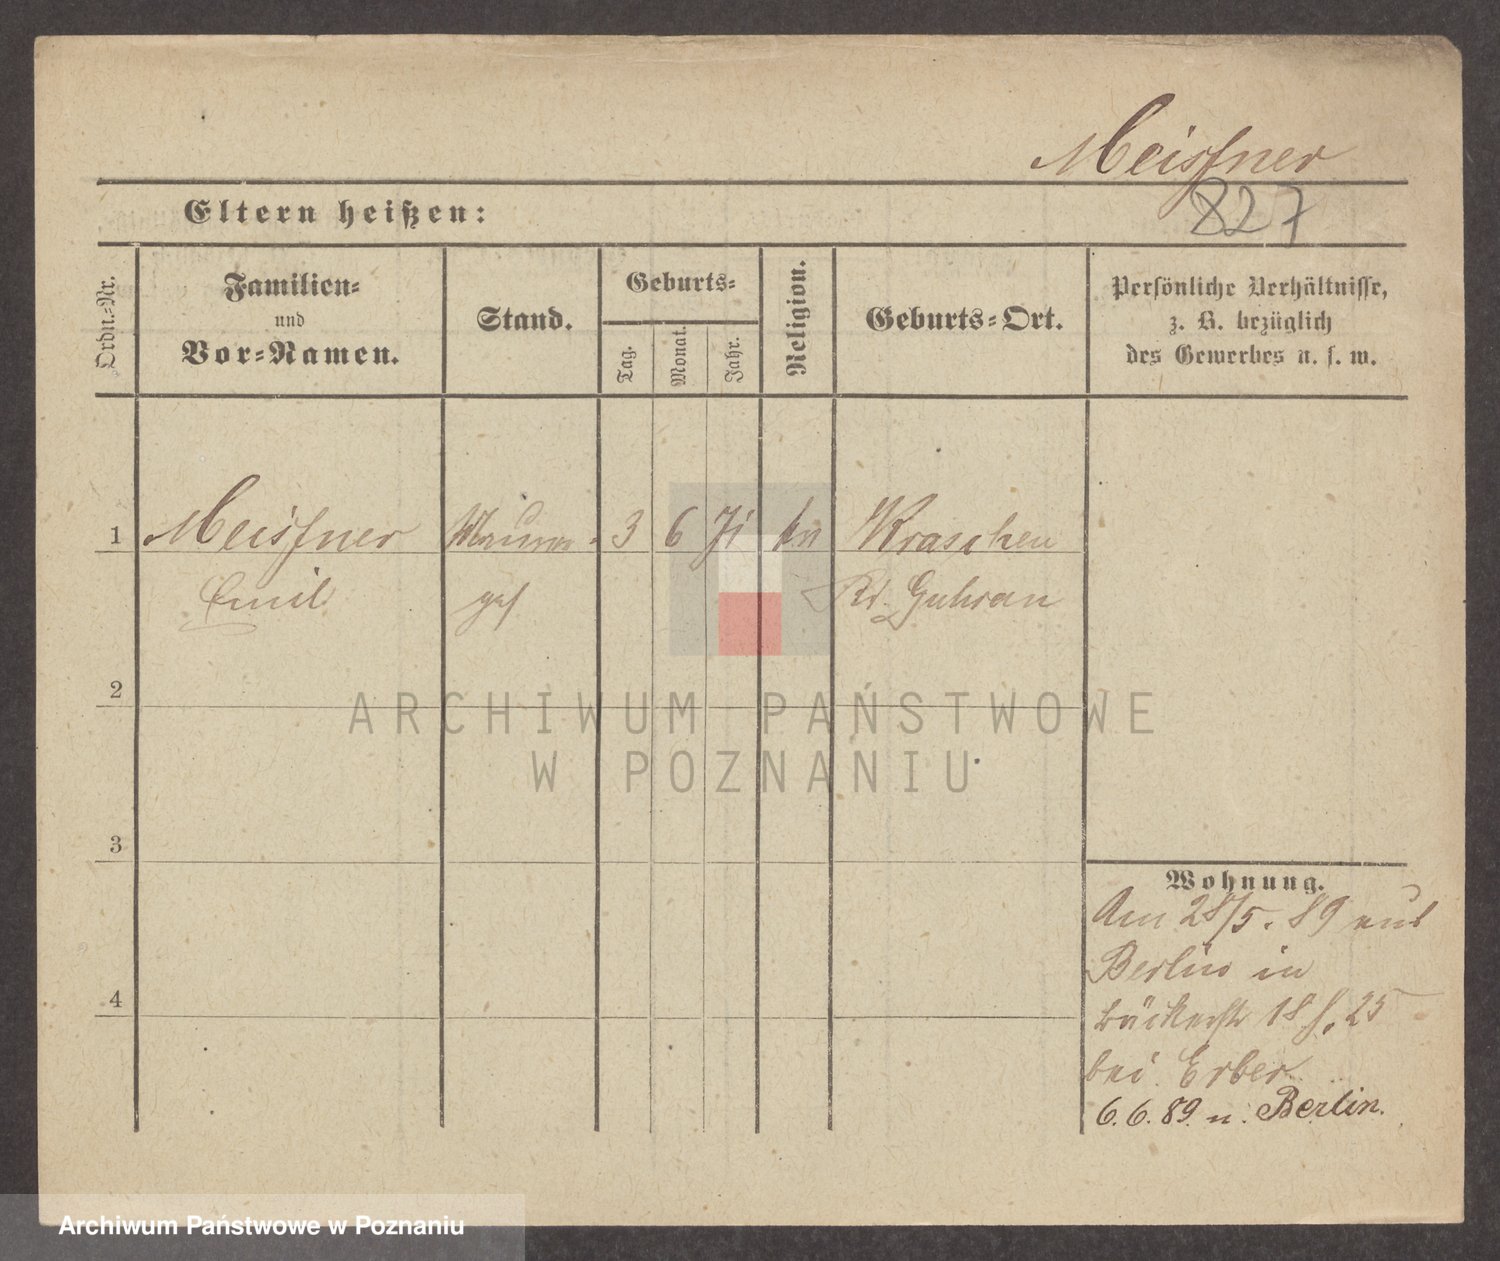 Meissner
827
Eltern heißen:
Ordn.-Nr.
Familien-
und
Vor-Namen.
Stand.
Geburts-
Tag.
Monat.
Jahr.
Religion.
Geburts-Ort.
Persönliche Verhältnisse,
z. B. bezüglich
des Gewerbes u. s. w.
1 Meissner Maurer- 3 6 71 Kraschen
Emil ges Kr. Guhrau
2
3
4
Wohnung.
Am 28/5. 89 aus
Berlin in
Bäckerstr 18 25
bei Erber
6. 6. 89 n. Berlin.
ARCHIWUM PAŃSTWOWE
W POZNANIU
Archiwum Państwowe w Poznaniu